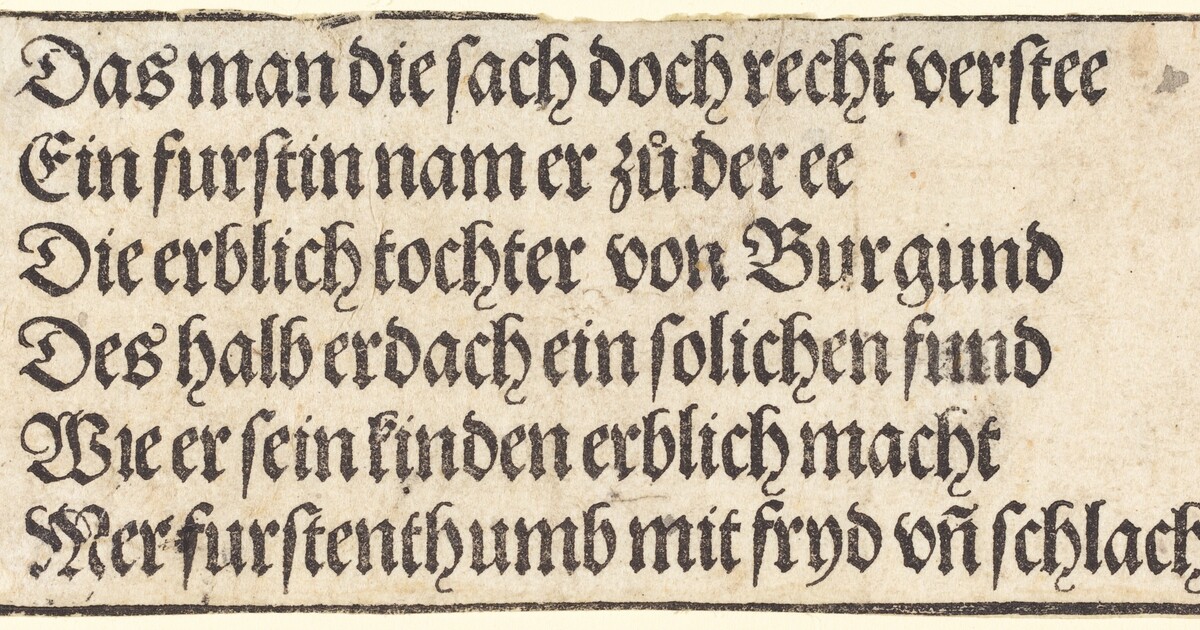 Das man die sach doch recht verstee
Ein furstin nam er zů der ee
Die erblich tochter von Burgund
Des halb erdach ein solichen fund
Wie er sein kinden erblich macht
Mer furstenthumb mit fryd vn̄ schlach